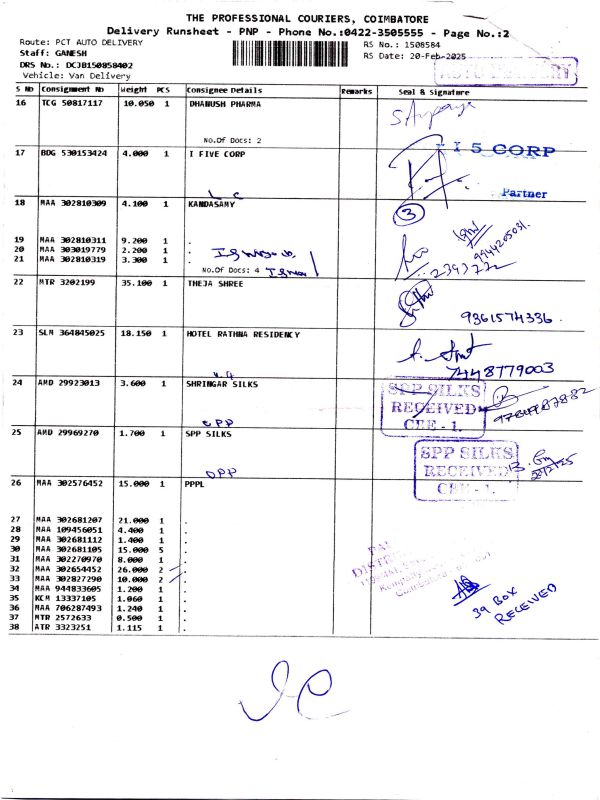 THE PROFESSIONAL COURIERS, COIMBATORE
Delivery Runsheet - PNP - Phone No.:0422-3505555 - Page No.:2
Route: PCT AUTO DELIVERY
Staff: GANESH
DRS No.: DCJB150858402
Vehicle: Van Delivery
RS No.: 1508584
RS Date: 20-Feb-2025
AUTO DELIVERY
S No Consignment No Weight PCS Consignee Details Remarks Seal & Signature
16 TCG 50817117 10.050 1 DHANUSH PHARMA
No.Of Docs: 2
17 BDG 530153424 4.000 1 I FIVE CORP
I 5 CORP
Partner
L C
18 MAA 302810309 4.100 1 KANDASAMY
3
19 MAA 302810311 9.200 1 .
20 MAA 303019779 2.200 1 .
21 MAA 302810319 3.300 1 .
No.Of Docs: 4
9944205031.
22 MTR 3202199 35.100 1 THEJA SHREE
9361574336.
23 SLM 364845025 18.150 1 HOTEL RATHNA RESIDENCY
7448779003
24 AMD 29923013 3.600 1 SHRINGAR SILKS
SPP SILKS
RECEIVED
CBE - 1.
OPP
25 AMD 29969270 1.700 1 SPP SILKS
SPP SILKS
RECEIVED
CBE - 1.
20/2/25
OPP
26 MAA 302576452 15.000 1 PPPL
27 MAA 302681207 21.000 1 .
28 MAA 109456051 4.400 1 .
29 MAA 302681112 1.400 1 .
30 MAA 302681105 15.000 5 .
31 MAA 302270970 8.000 1 .
32 MAA 302654452 26.000 2 .
33 MAA 302827290 10.000 2 .
34 MAA 944833605 1.200 1 .
35 KCM 13337105 1.060 1 .
36 MAA 706287493 1.240 1 .
37 MTR 2572633 0.500 1 .
38 ATR 3323251 1.115 1 .
39 BOX
RECEIVED